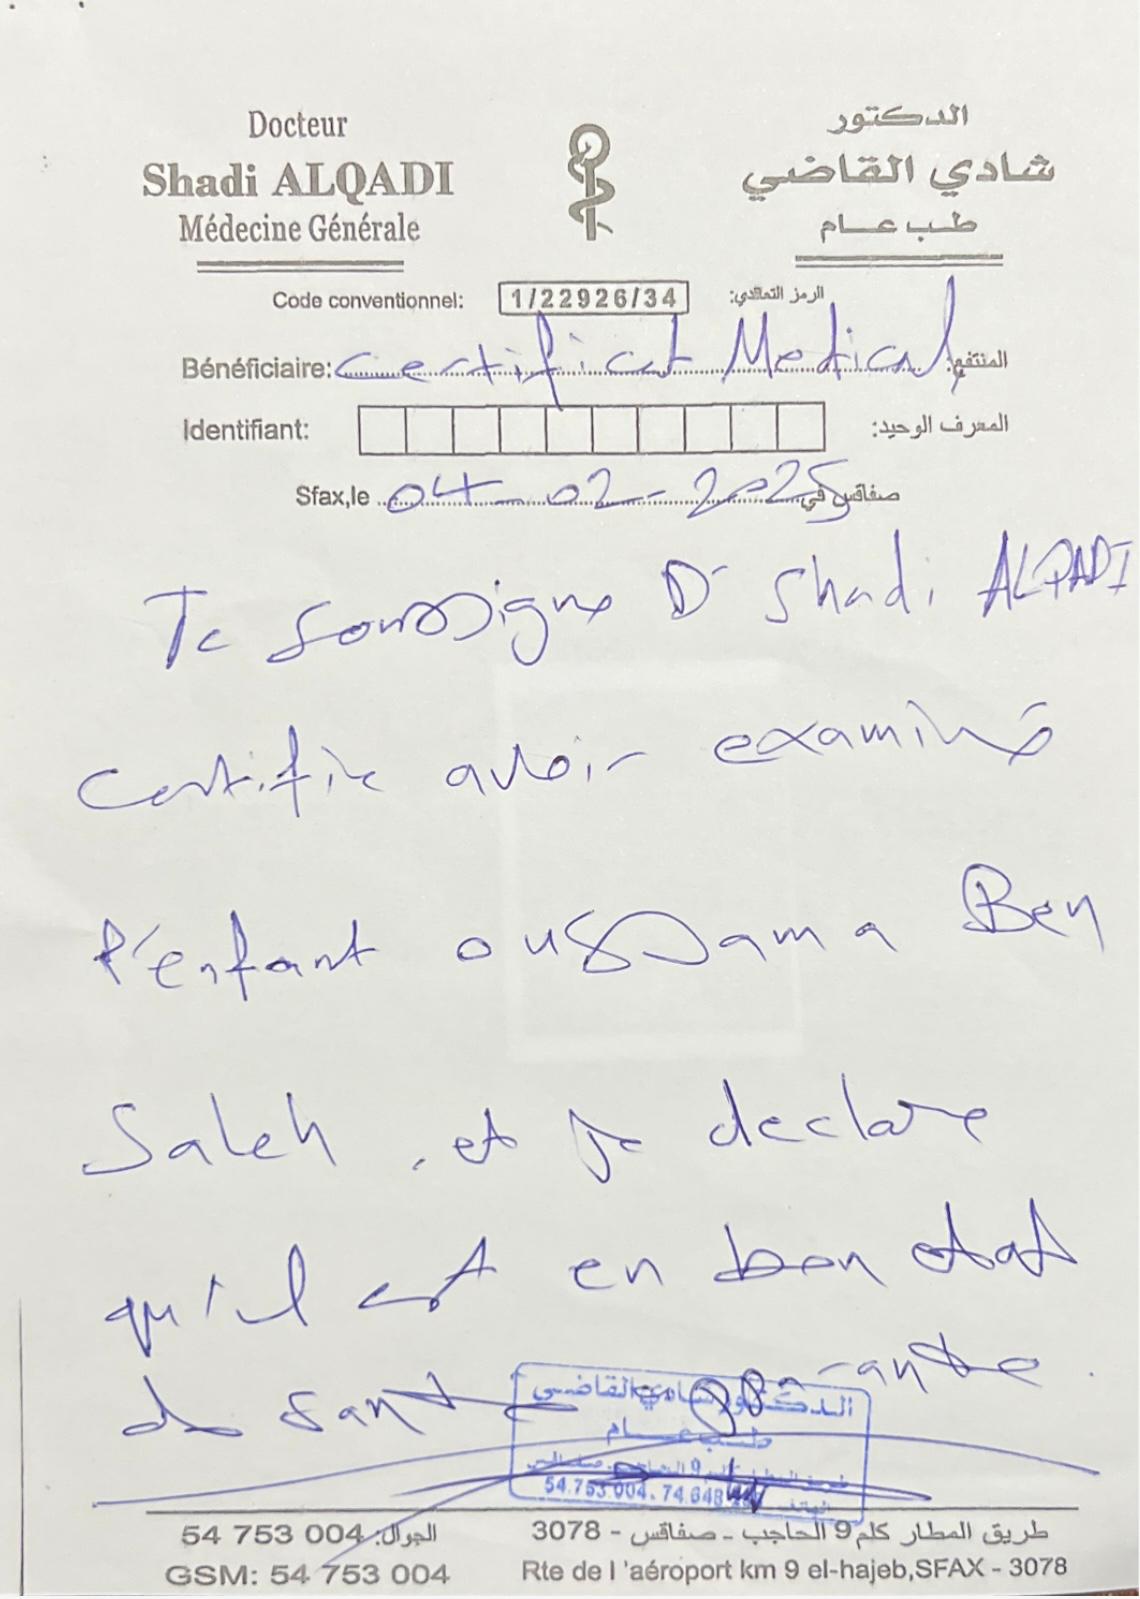 Docteur
Shadi ALQADI
Médecine Générale
الدكتور
شادي القاضي
طب عام
Code conventionnel: 1/22926/34 الرمز التعاقدي:
Bénéficiaire: Certificat Medical المنتفع:
Identifiant: المعرف الوحيد:
Sfax,le 04-02-2025 صفاقس في
Je soussigne Dr Shadi ALQADI
certifie avoir examiné
l'enfant oussama Ben
Saleh, et je declare
qu'il est en bon etat
de sante
الدكتور شادي القاضي
طب عام
54.753.004
54 753 004 الجوال:
GSM: 54 753 004
طريق المطار كلم 9 الحاجب - صفاقس - 3078
Rte de l 'aéroport km 9 el-hajeb,SFAX - 3078